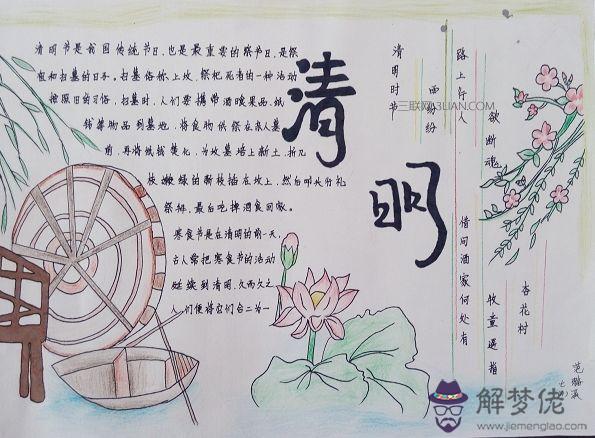 清明节是我国传统节日,也是最重要的祭节日,是祭
祖和扫墓的日子。扫墓俗称上坟,祭祀死者的一种活动
按照旧的习俗,扫墓时,人们要携带酒食果品,纸
钱等物品到墓地,将食物供祭在亲人墓
前,再将纸钱焚化,为坟墓培上新土,折几
枝嫩绿的新枝插在坟上,然后叩头行礼
祭拜,最后吃掉酒食回家。
寒食节是在清明的前一天,
古人常把寒食节的活动
延续到清明,久而久之
人们便将它们合二为一
清
明
清明时节
雨纷纷
路上行人
欲断魂
借问酒家何处有
牧童遥指
杏花村
三联网 3LIAN.COM
解梦佬
www.jiemenglao.com